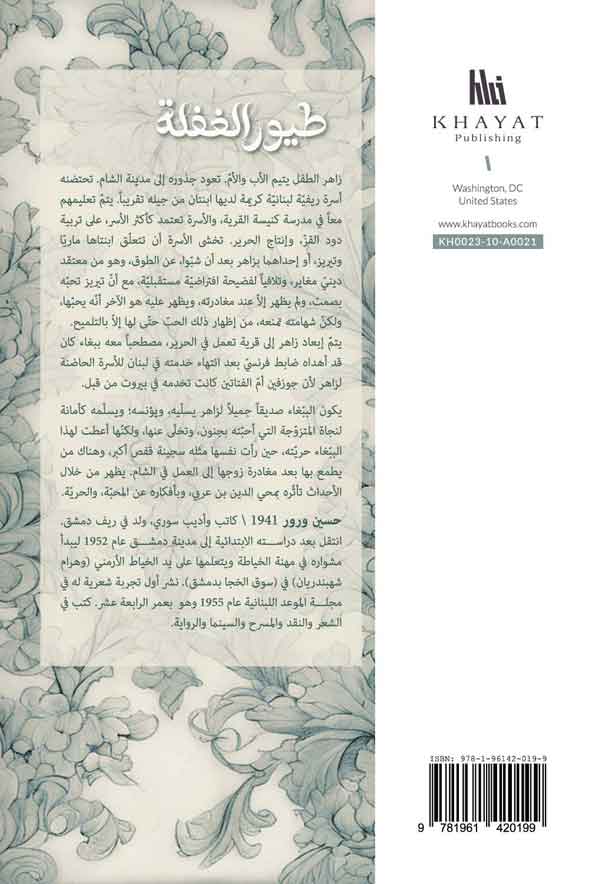 طيور الغفلة
زاهر الطفل يتيم الأب والأمّ. تعود جذوره إلى مدينة الشام. تحتضنه
أسرة ريفيّة لبنانيّة كريمة لديها ابنتان من جيله تقريباً. يتمّ تعليمهم
معاً في مدرسة كنيسة القرية، والأسرة تعتمد كأكثر الأسر، على تربية
دود القزّ، وإنتاج الحرير. تخشى الأسرة أن تتعلّق ابنتاها ماريّا
وتيريز، أو إحداهما بزاهر بعد أن شبّوا، عن الطوق، وهو من معتقد
دينيّ مغاير، وتلافياً لفضيحة افتراضيّة مستقبليّة، مع أنّ تيريز تحبّه
بصمت، ولم يظهر إلاّ عند مغادرته، ويظهر عليه هو الآخر أنّه يحبّها،
ولكنّ شهامته تمنعه، من إظهار ذلك الحبّ حتّى لها إلاّ بالتلميح.
يتمّ إبعاد زاهر إلى قرية تعمل في الحرير، مصطحباً معه ببغاء كان
قد أهداه ضابط فرنسيّ بعد انتهاء خدمته في لبنان للأسرة الحاضنة
لزاهر لأن جوزفين أمّ الفتاتين كانت تخدمه في بيروت من قبل.
يكون الببّغاء صديقاً جميلاً لزاهر يسلّيه، ويؤنسه؛ ويسلّمه كأمانة
لنجاة المتزوّجة التي أحبّته بجنون، وتخلّى عنها، ولكنّها أعطت لهذا
الببّغاء حريّته، حين رأت نفسها مثله سجينة قفص أكبر، وهناك من
يطمع بها بعد مغادرة زوجها إلى العمل في الشام. يظهر من خلال
الأحداث تأثّره بمحي الدين بن عربي، وبأفكاره عن المحبّة، والحريّة.
حسين ورور 1941 \ كاتب وأديب سوري، ولد في ريف دمشق.
انتقل بعد دراسته الابتدائية إلى مدينة دمشق عام 1952 ليبدأ
مشواره في مهنة الخياطة ويتعلمها على يد الخياط الأرمني (وهرام
شهبندريان) في (سوق الخجا بدمشق). نشر أول تجربة شعرية له في
مجلة الموعد اللبنانية عام 1955 وهو بعمر الرابعة عشر. كتب في
الشعر والنقد والمسرح والسينما والرواية.
KHAYAT
Publishing
Washington, DC
United States
www.khayatbooks.com
KH0023-10-A0021
ISBN: 978-1-96142-019-9
9 781961 420199